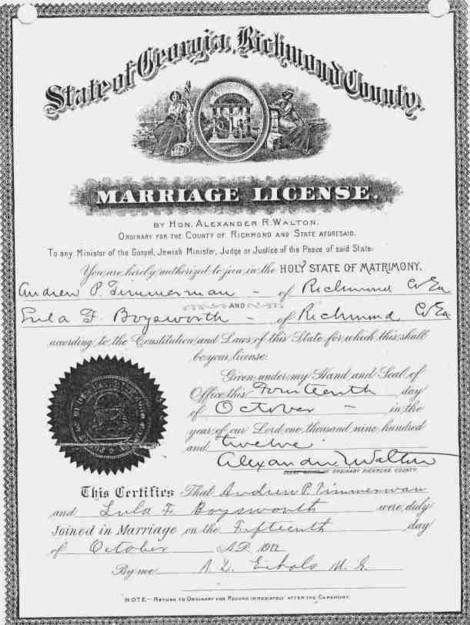 State of Georgia, Richmond County.
MARRIAGE LICENSE.
BY HON. ALEXANDER R. WALTON.
ORDINARY FOR THE COUNTY OF RICHMOND AND STATE AFORESAID.
To any Minister of the Gospel, Jewish Minister, Judge or Justice of the Peace of said State:
You are hereby authorized to join in the HOLY STATE OF MATRIMONY,
Andrew P. Timmerman - of Richmond Co Ga
AND
Lula F. Boysworth - of Richmond Co Ga
according to the Constitution and Laws of this State, for which, this shall
be your license.
Given under my Hand and Seal of
Office this Fourteenth day
of October - in the
year of our Lord one thousand nine hundred
and twelve
Alexander R Walton
ORDINARY RICHMOND COUNTY
This Certifies That Andrew P. Timmerman
and Lula F. Boysworth were duly
Joined in Marriage on the Fifteenth day
of October A.D. 1912
By me A. D. Echols M. G.
NOTE - RETURN TO ORDINARY FOR RECORD IMMEDIATELY AFTER THE CEREMONY.